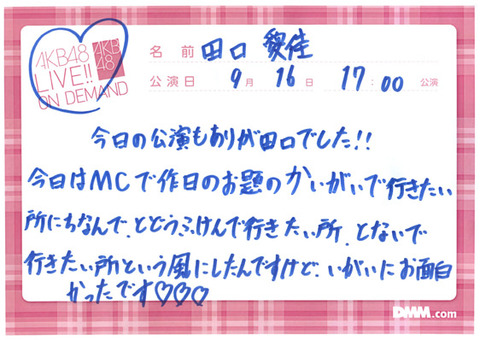 AKB48
LIVE!!
ON DEMAND
AKB
48
名前 田口 愛佳
公演日 9月16日 17:00 公演
今日の公演もありが田口でした!!
今日はMCで作日のお題のかいがいで行きたい
所にちなんで、とどうふけんで行きたい所、とないで
行きたい所という風にしたんですけど、いがいにお面白
かったです♡♡♡
DMM.com